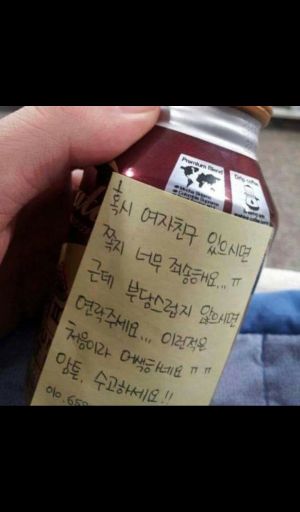 Premium Blend
혹시 여자친구 있으시면
쪽지 너무 죄송해요... ㅠ
근데 부담스럽지 않으시면
연락주세요... 이런적은
처음이라 어색하네요 ㅠㅠ
암튼, 수고하세요!!